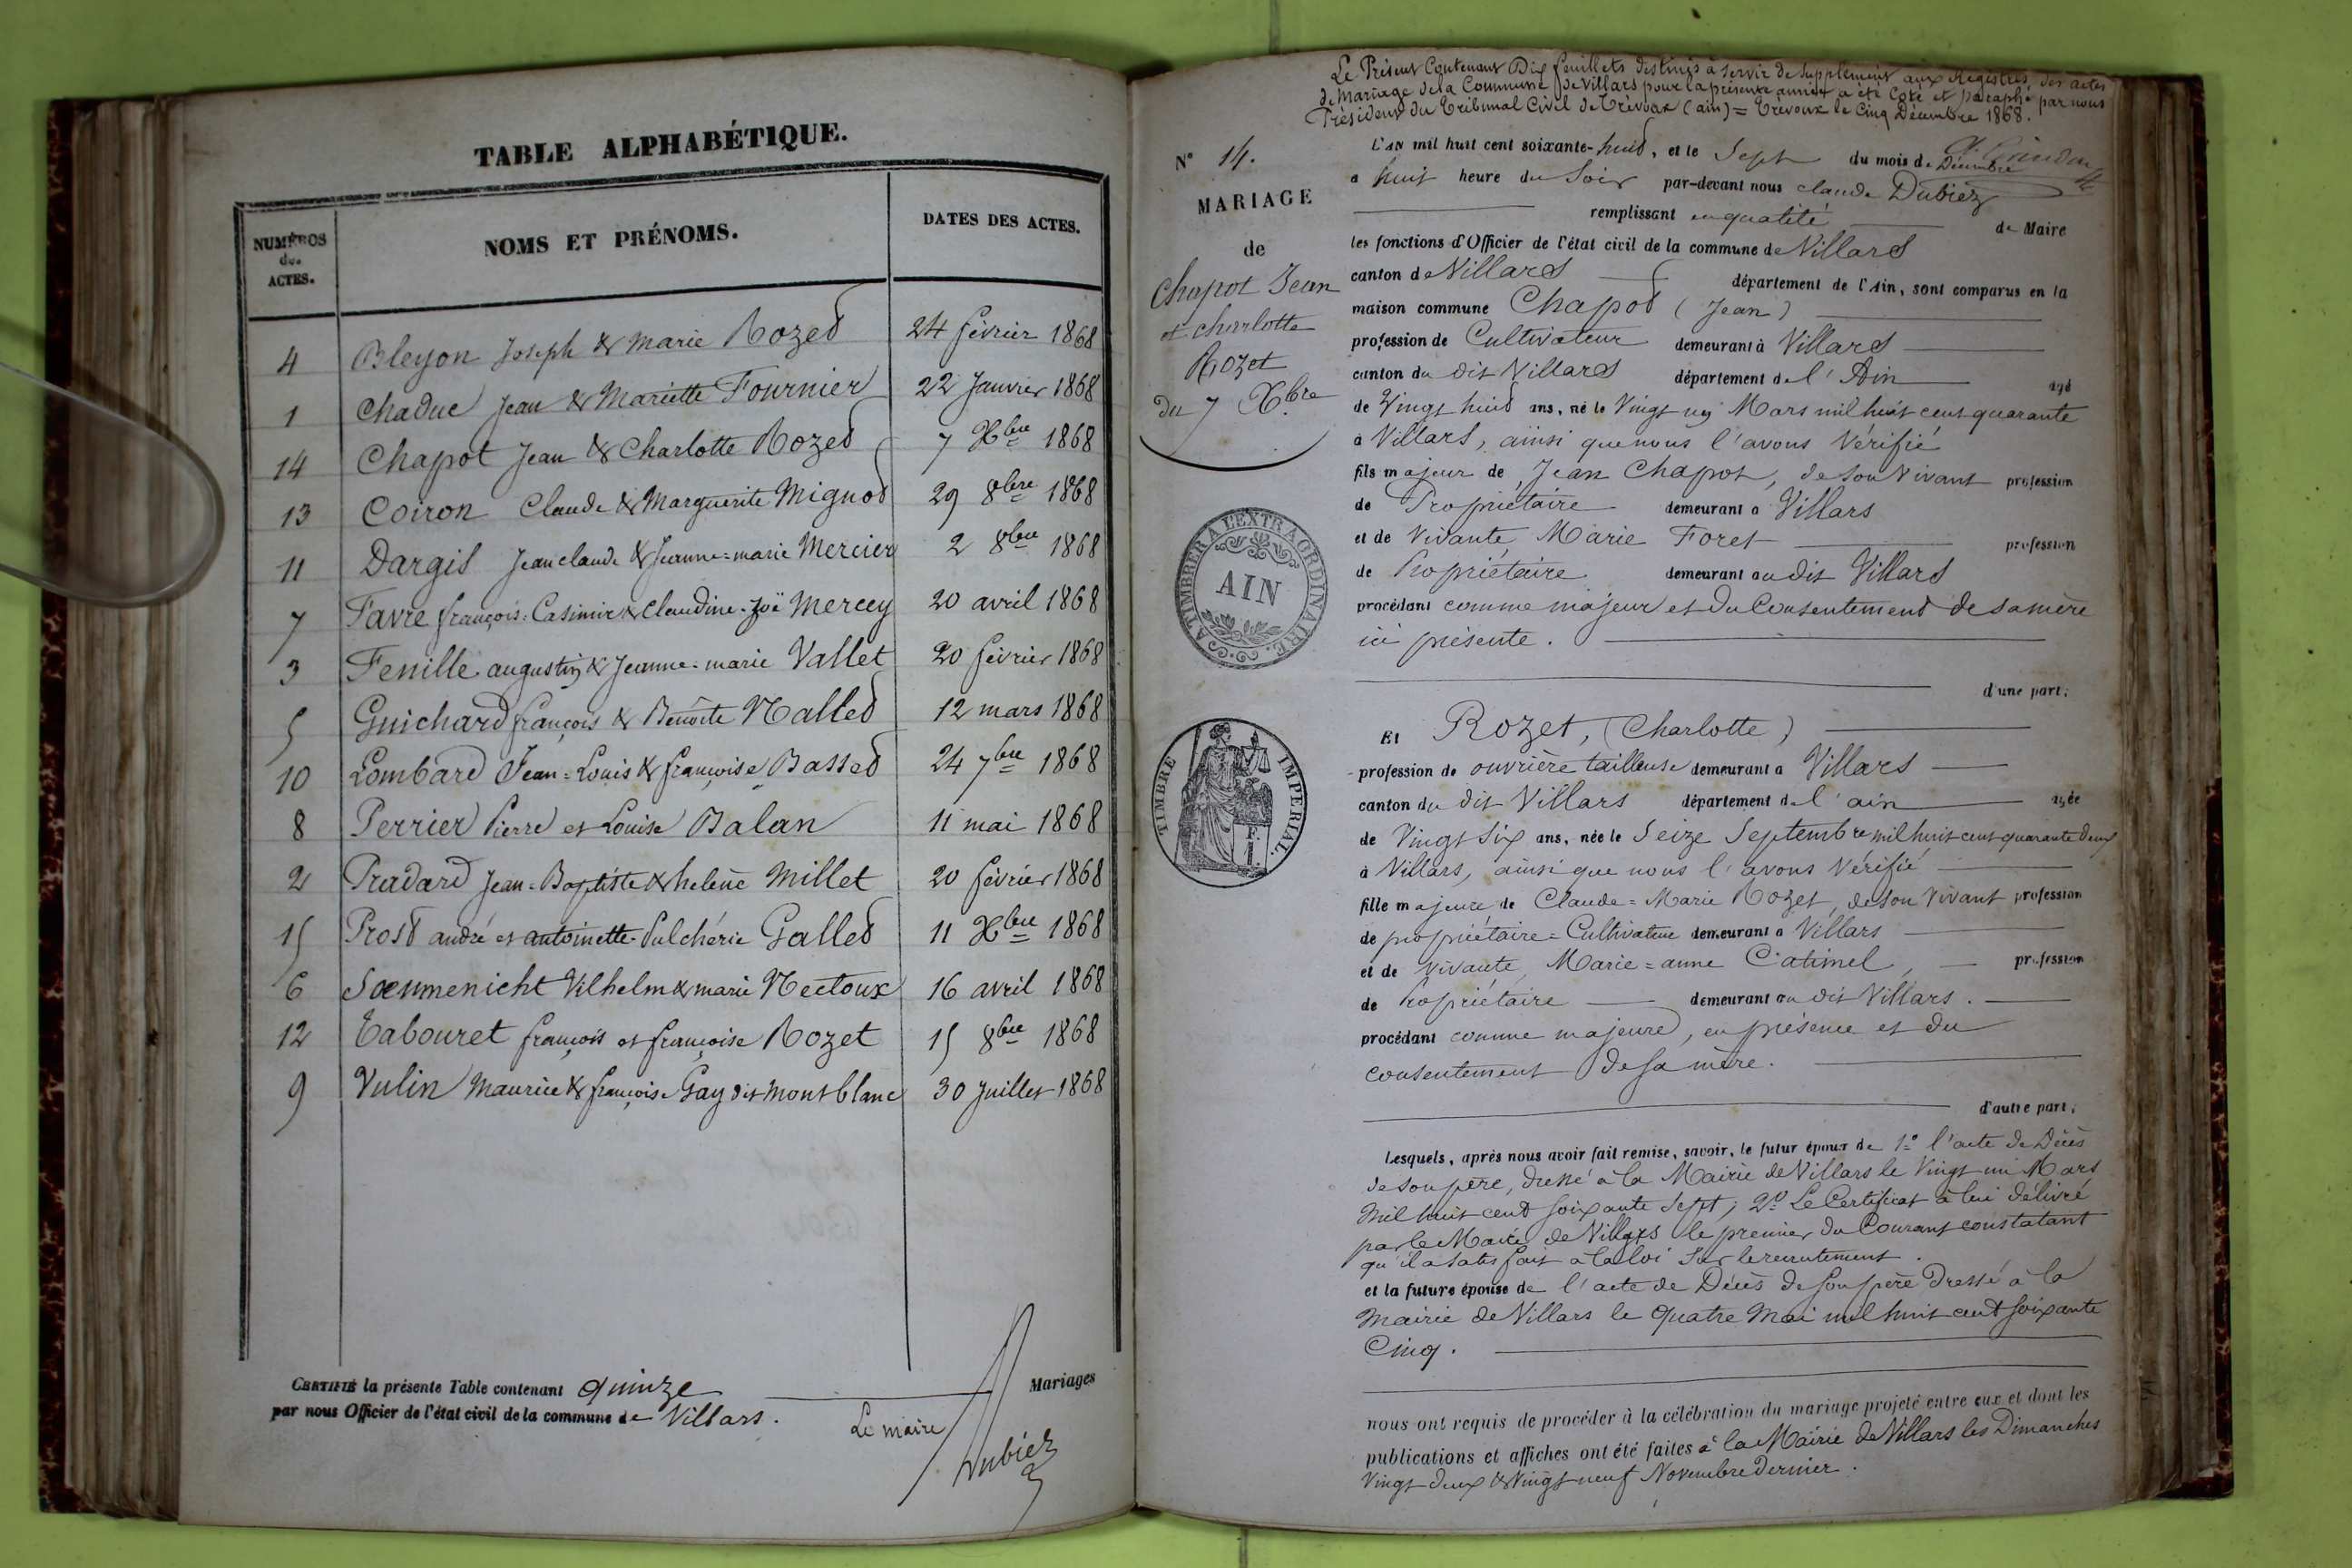 TABLE ALPHABÉTIQUE.
NUMÉROS des ACTES. NOMS ET PRÉNOMS. DATES DES ACTES.
4 Bleyon Joseph & Marie Rozet 24 février 1868
1 Chaduc Jean & Mariette Fournier 22 Janvier 1868
14 Chapot Jean & Charlotte Rozet 7 Xbre 1868
13 Coiron Claude & Marguerite Mignot 29 8bre 1868
11 Dargis Jean claude & Jeanne=marie Mercier 2 8bre 1868
7 Favre françois=Casimir & Claudine=Zoë Mercey 20 avril 1868
3 Fenille augustin & Jeanne=marie Vallet 20 février 1868
5 Guichard françois & Benoîte Nallet 12 mars 1868
10 Lombard Jean=Louis & françoise Basset 24 7bre 1868
8 Perrier Pierre et Louise Balan 11 mai 1868
2 Pradard Jean=Baptiste & helène Millet 20 février 1868
15 Prost andré et antoinette=Pulchérie Gallet 11 Xbre 1868
6 Sœumenicht Vilhelm & marie Nectoux 16 avril 1868
12 Tabouret françois et françoise Rozet 15 8bre 1868
9 Vulin Maurice & françoise Gay dit mont blanc 30 Juillet 1868
CERTIFIÉ la présente Table contenant quinze Mariages
par nous Officier de l'état civil de la commune de Villars.
Le maire
Dubiez
Le Présent Contenant Dix feuillets destinés à servir de Supplément aux Registres des actes
de Mariage de la Commune de Villars pour la présente année a été Coté et paraphé par nous
Président du Tribunal Civil de Trévoux (ain) = Trévoux le Cinq Décembre 1868.
N° 14.
MARIAGE
de
Chapot Jean
et charlotte
Rozet
du 7 Xbre
A TIMBRER A L'EXTRAORDINAIRE.
AIN
TIMBRE IMPERIAL.
L'AN mil huit cent soixante-huit, et le Sept du mois de Décembre
a huit heure du Soir par-devant nous claude Dubiez
remplissant en qualité de Maire
les fonctions d'Officier de l'état civil de la commune de Villars
canton de Villars département de l'Ain, sont comparus en la
maison commune Chapot (Jean)
profession de Cultivateur demeurant à Villars
canton du dit Villars département de l'Ain âgé
de Vingt huit ans, né le Vingt un Mars mil huit cent quarante
à Villars, ainsi que nous l'avons Vérifié
fils majeur de Jean Chapot, de son Vivant profession
de Propriétaire demeurant a Villars
et de Vivante Marie Foret profession
de Propriétaire demeurant au dit Villars
procédant comme majeur et du Consentement de sa mère
ici présente.
d'une part;
Et Rozet, (Charlotte)
profession de ouvrière tailleuse demeurant a Villars
canton du dit Villars département de l'ain âgée
de Vingt Six ans, née le Seize Septembre mil huit cent quarante deux
à Villars, ainsi que nous l'avons Vérifié
fille majeure de Claude=Marie Rozet, de son Vivant profession
de propriétaire=Cultivateur demeurant a Villars
et de vivante Marie=anne Catimel, profession
de Propriétaire demeurant au dit Villars.
procédant comme majeure, en présence et du
consentement de sa mère.
d'autre part;
Lesquels, après nous avoir fait remise, savoir, le futur époux de 1° l'acte de Décès
de son père, dressé à la Mairie de Villars le Vingt un Mars
Mil huit cent soixante Sept; 2° Le Certificat à lui délivré
par le Maire de Villars le premier du Courant constatant
qu'il a satisfait à la loi sur le recrutement.
et la future épouse de l'acte de Décès de son père Dressé à la
Mairie de Villars le quatre Mai mil huit cent soixante
Cinq.
nous ont requis de procéder à la célébration du mariage projeté entre eux et dont les
publications et affiches ont été faites à la Mairie de Villars les Dimanches
Vingt deux & Vingt neuf Novembre dernier.